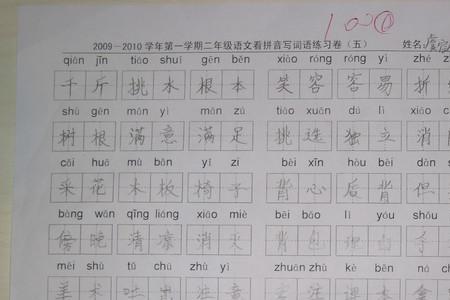 100
2009－2010学年第一学期二年级语文看拼音写词语练习卷（五） 姓名:
qiān jīn tiāo shuǐ gēn běn xiào róng róng yì zhé
千斤 挑水 根本 笑容 容易 折
shù gēn mǎn yì mǎn zú tiāo xuǎn dú lì xiāo
树根 满意 满足 挑选 独立 消
cǎi huā mù bǎn yǐ zi bèi xīn hòu bèi dàn
采花 木板 椅子 背心 后背 但
bàng wǎn qīng liáng xiāo miè bēi bāo lǐ yóu shǒu
傍晚 清凉 消灭 背包 理由 手
měi shù tǔ chū zhù yì zhuān zhù kè běn ná
美术 吐出 注意